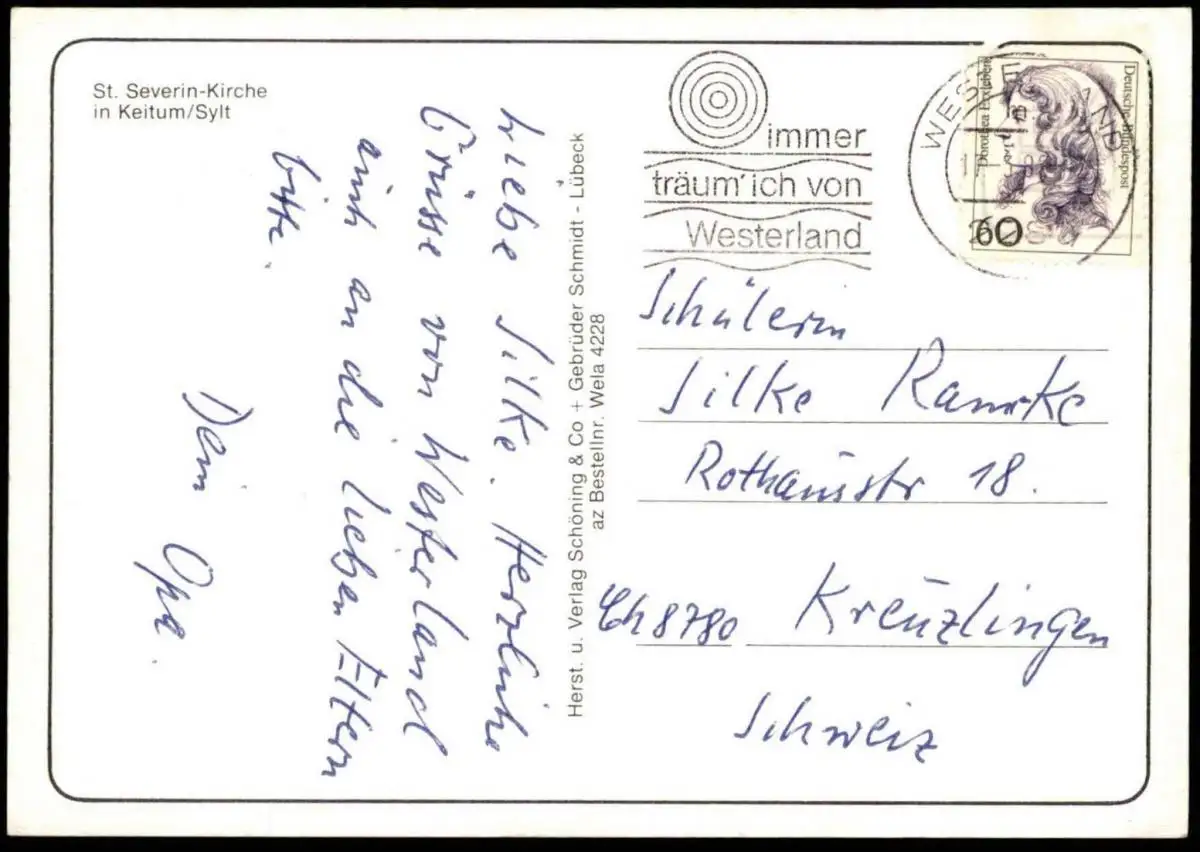 St. Severin-Kirche
in Keitum/Sylt
Liebe Silke. Herzliche
Grüsse von Westerland
auch an die lieben Eltern
bitte.
Dein Opa.
Herst. u. Verlag Schöning & Co + Gebrüder Schmidt - Lübeck
az Bestellnr. Wela 4228
immer
träum' ich von
Westerland
WESTERLAND
Deutsche Bundespost
Dorothea Erxleben
60
Schülerin
Silke
Rothausstr 18.
Ch 8780 Kreuzlingen
Schweiz